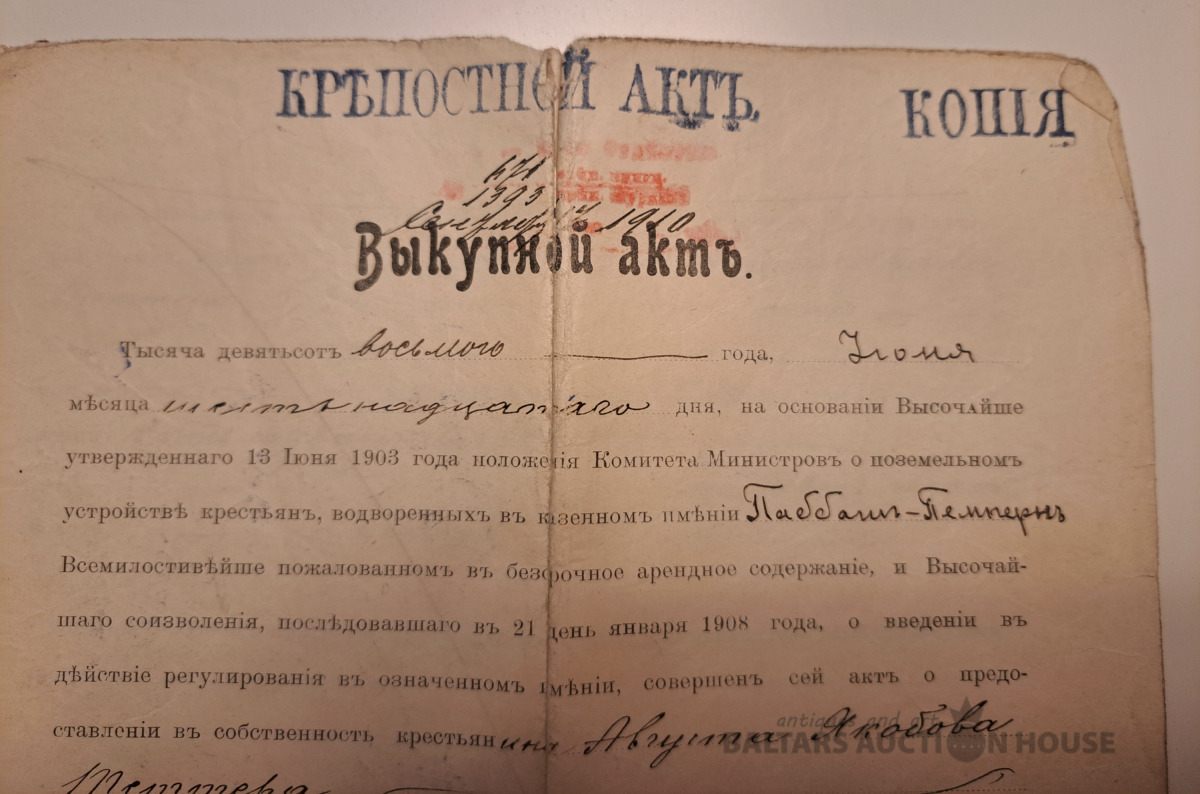 КРѢПОСТНОЙ АКТЪ. КОПІЯ
1393
Сентября 1910
Выкупной актъ.
Тысяча девятьсотъ восьмого года, Іюня
мѣсяца шестнадцатаго дня, на основаніи Высочайше
утвержденнаго 13 Іюня 1903 года положенія Комитета Министровъ о поземельномъ
устройствѣ крестьянъ, водворенныхъ въ казенномъ имѣніи Паббашъ-Темпернъ
Всемилостивѣйше пожалованномъ въ безсрочное арендное содержаніе, и Высочай-
шаго соизволенія, послѣдовавшаго въ 21 день января 1908 года, о введеніи въ
дѣйствіе регулированія въ означенномъ имѣніи, совершенъ сей актъ о предо-
ставленіи въ собственность крестьянина Августа Якобова
antiques and art
BALTARS AUCTION HOUSE